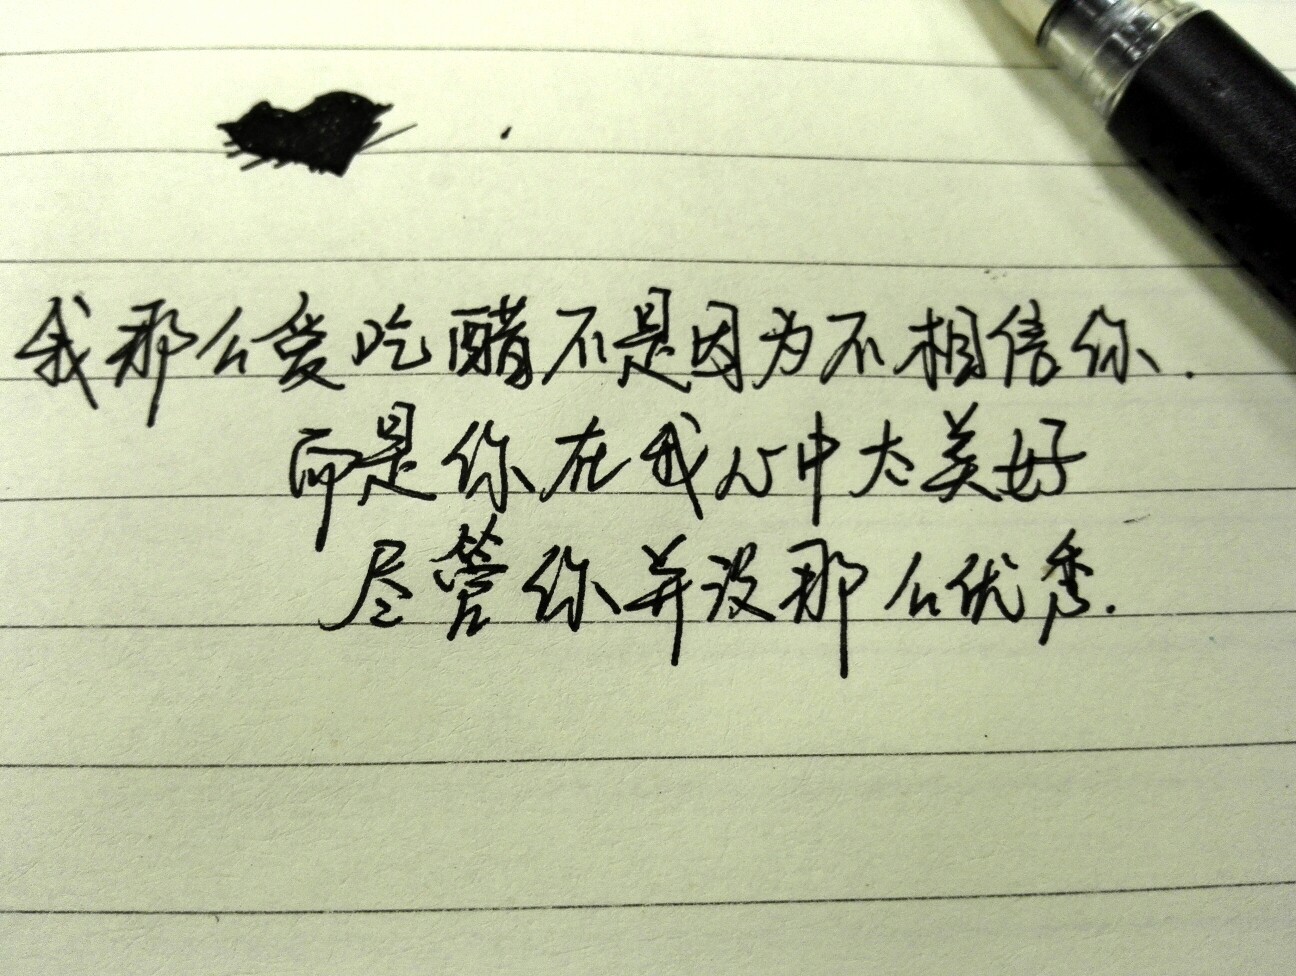 我那么爱吃醋不是因为不相信你.
而是你在我心中太美好
尽管你并没那么优秀.